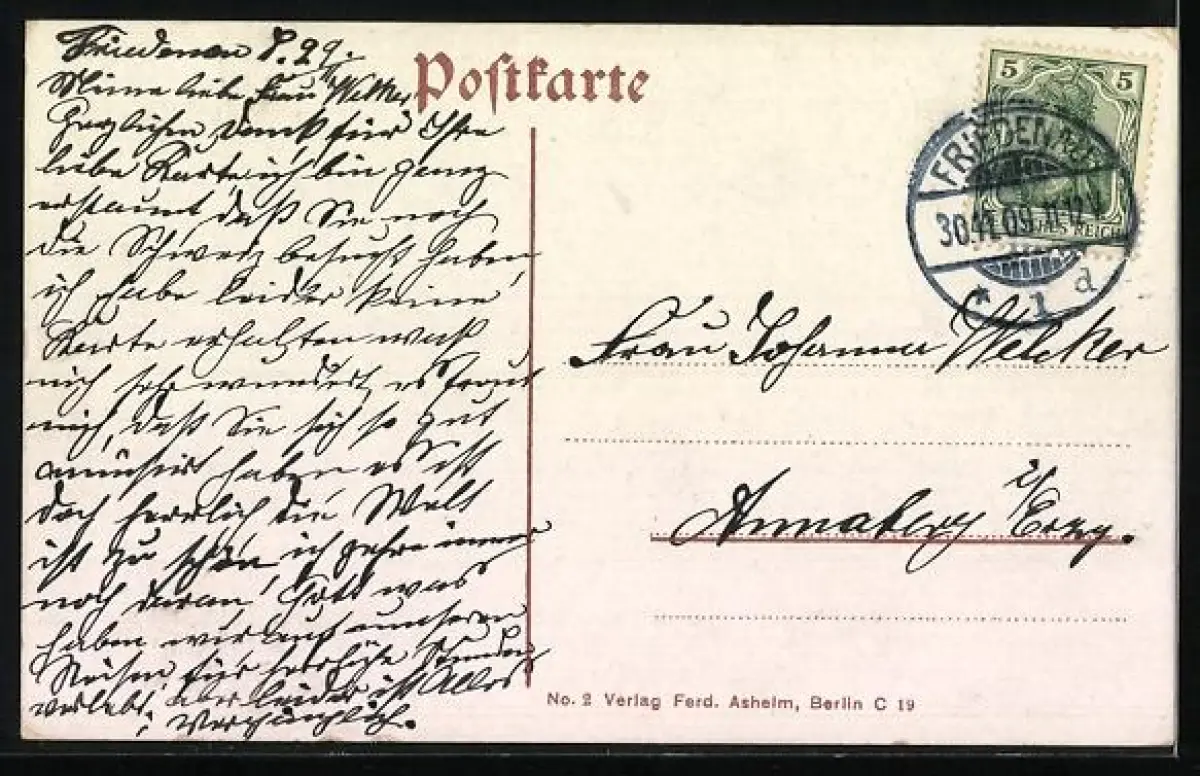 Friedenau d. 29.
Meine liebe Frau Welker
Herzlichen Dank für Ihre
liebe Karte ich bin ganz
erstaunt daß Sie noch
die Schweiz besucht haben,
ich habe leider keine
Karte erhalten was
mich sehr wundert, es freut
mich, daß Sie sich so gut
amüsiert haben es ist
doch herrlich die Welt
ist zu schön, ich zehre immer
noch daran, Gott was
haben wir auf unseren
Reisen für herrliche Stunden
verlebt, aber leider ist Alles
vergänglich.
Postkarte
5 5
DEUTSCHES REICH
FRIEDENAU
30.11.09. 11-12 V.
* 1 d
Frau Johanna Welcker
Annaberg i/ Erzg.
No. 2 Verlag Ferd. Ashelm, Berlin C 19